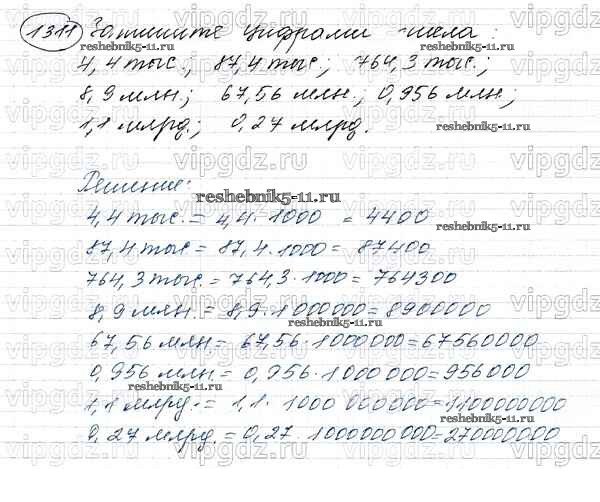 1311 Запишите цифрами числа:
4,4 тыс.; 87,4 тыс.; 764,3 тыс.;
8,9 млн.; 67,56 млн.; 0,956 млн.;
1,1 млрд.; 0,27 млрд.
Решение:
4,4 тыс. = 4,4 · 1000 = 4400
87,4 тыс = 87,4 · 1000 = 87400
764,3 тыс. = 764,3 · 1000 = 764300
8,9 млн. = 8,9 · 1000000 = 8900000
67,56 млн. = 67,56 · 1000000 = 67560000
0,956 млн = 0,956 · 1000000 = 956000
1,1 млрд. = 1,1 · 1000 000000 = 1100000000
0,27 млрд. = 0,27 · 1000000000 = 270000000
reshebnik5-11.ru
reshebnik5-11.ru
reshebnik5-11.ru
reshebnik5-11.ru
reshebnik5-11.ru
reshebnik5-11.ru
reshebnik5-11.ru
vipgdz.ru